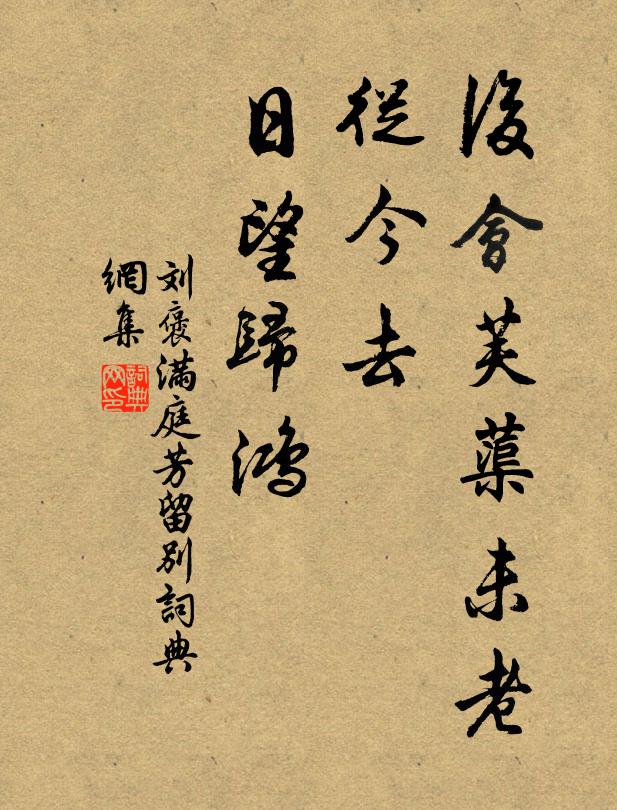 後會芙蕖未老
從今去
日望歸鴻
刘褒满庭芳留别詞典
網集
詞典网印